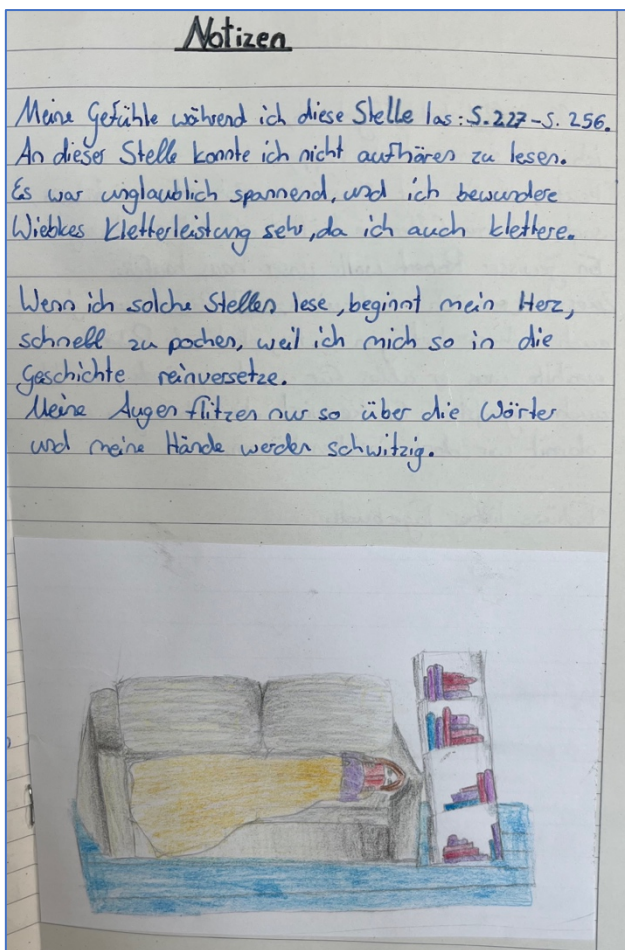 Notizen
Meine Gefühle während ich diese Stelle las: S.227-S. 256.
An dieser Stelle konnte ich nicht aufhören zu lesen.
Es war unglaublich spannend, und ich bewundere
Wiebkes Kletterleistung sehr, da ich auch klettere.
Wenn ich solche Stellen lese, beginnt mein Herz,
schnell zu pochen, weil ich mich so in die
Geschichte reinversetze.
Meine Augen flitzen nur so über die Wörter
und meine Hände werden schwitzig.